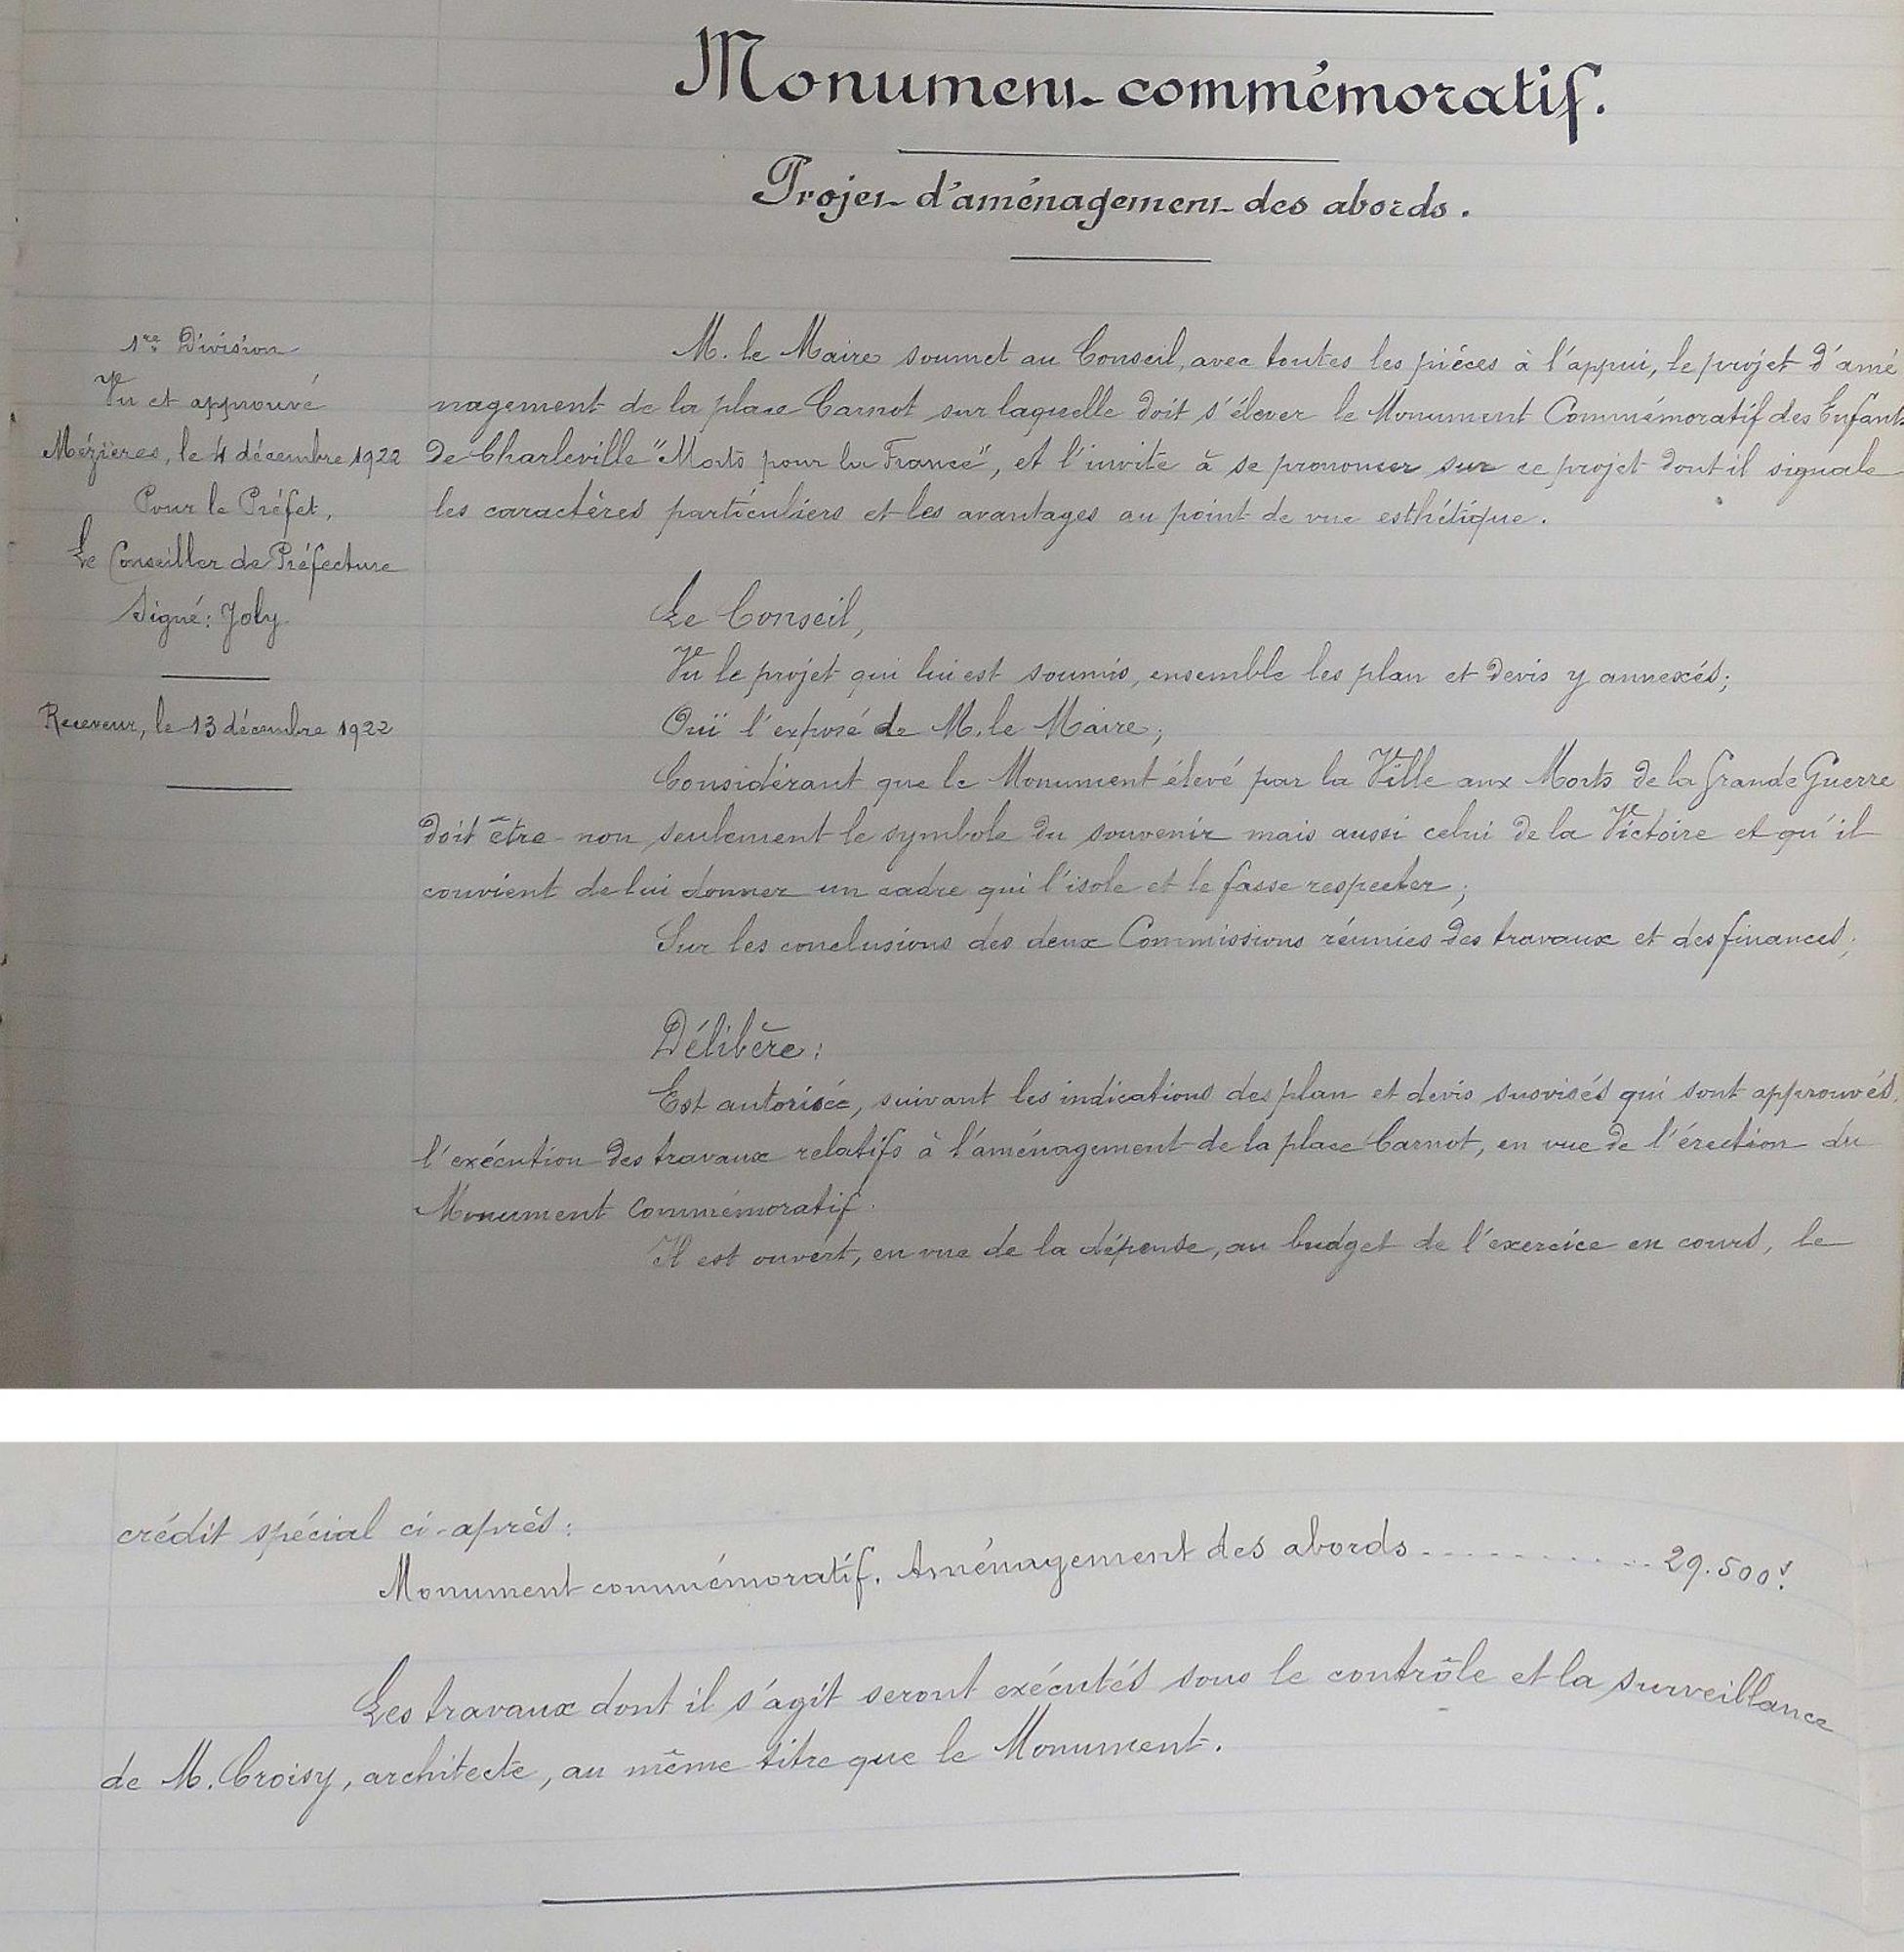 Monument commémoratif.
Projet d'aménagement des abords.
1re Division
Vu et approuvé
Mézières, le 4 décembre 1922
Pour le Préfet,
Le Conseiller de Préfecture
Signé: Joly
Receveur, le 13 décembre 1922
M. le Maire soumet au Conseil, avec toutes les pièces à l'appui, le projet d'amé
nagement de la place Carnot sur laquelle doit s'élever le Monument Commémoratif des Enfants
de Charleville "Morts pour la France", et l'invite à se prononcer sur ce projet dont il signale
les caractères particuliers et les avantages au point de vue esthétique.
Le Conseil,
Vu le projet qui lui est soumis, ensemble les plan et devis y annexés;
Ouï l'exposé de M. le Maire;
Considérant que le Monument élevé par la Ville aux Morts de la Grande Guerre
doit être non seulement le symbole du souvenir mais aussi celui de la Victoire et qu'il
convient de lui donner un cadre qui l'isole et le fasse respecter;
Sur les conclusions des deux Commissions réunies des travaux et des finances;
Délibère:
Est autorisée, suivant les indications des plan et devis susvisés qui sont approuvés,
l'exécution des travaux relatifs à l'aménagement de la place Carnot, en vue de l'érection du
Monument Commémoratif.
Il est ouvert, en vue de la dépense, au budget de l'exercice en cours, le
crédit spécial ci-après:
Monument commémoratif. Aménagement des abords ............ 29.500f.
Les travaux dont il s'agit seront exécutés sous le contrôle et la surveillance
de M. Croisy, architecte, au même titre que le Monument.